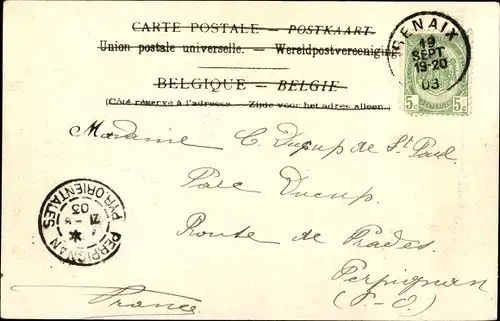 CARTE POSTALE – POSTKAART
Union postale universelle. – Wereldpostvereeniging
BELGIQUE – BELGIE
(Côté réservé à l'adresse. – Zijde voor het adres alleen.)
RENAIX
19
SEPT
19-20
03
5c 5c
Madame C. Ducup de St Paul
Parc Ducup
Route de Prades
Perpignan
(P.-O.)
France
PERPIGNAN
PYR. ORIENTALES
21
03